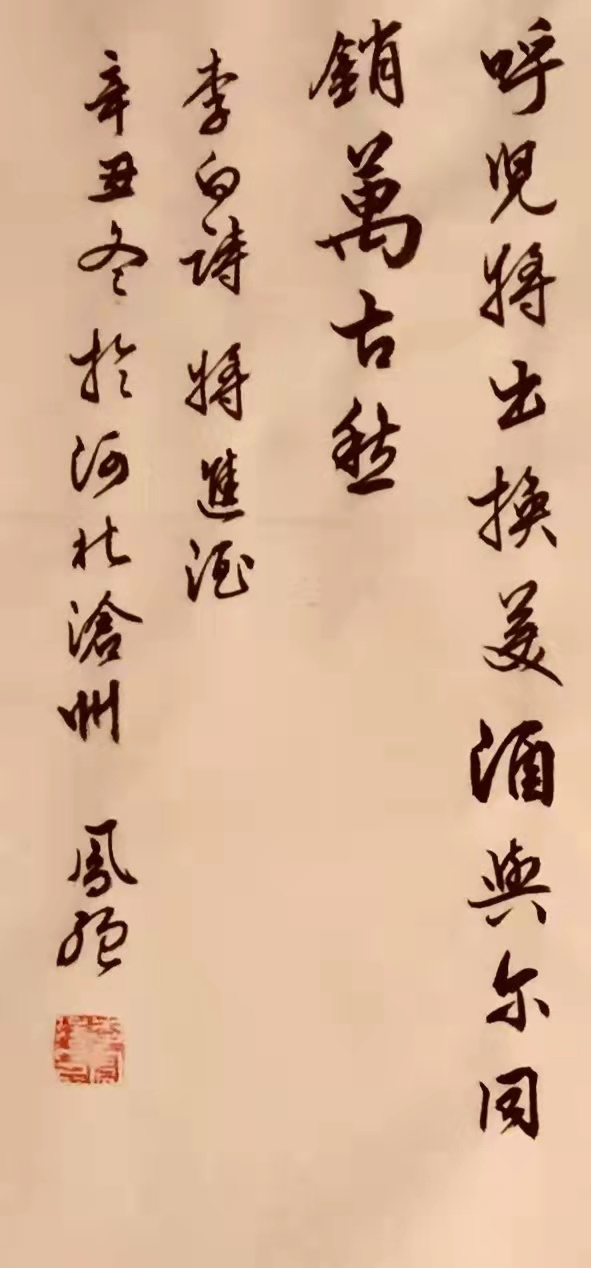 呼児将出換美酒與尔同
銷萬古愁
李白詩 将進酒
辛丑冬於河北滄州 鳳